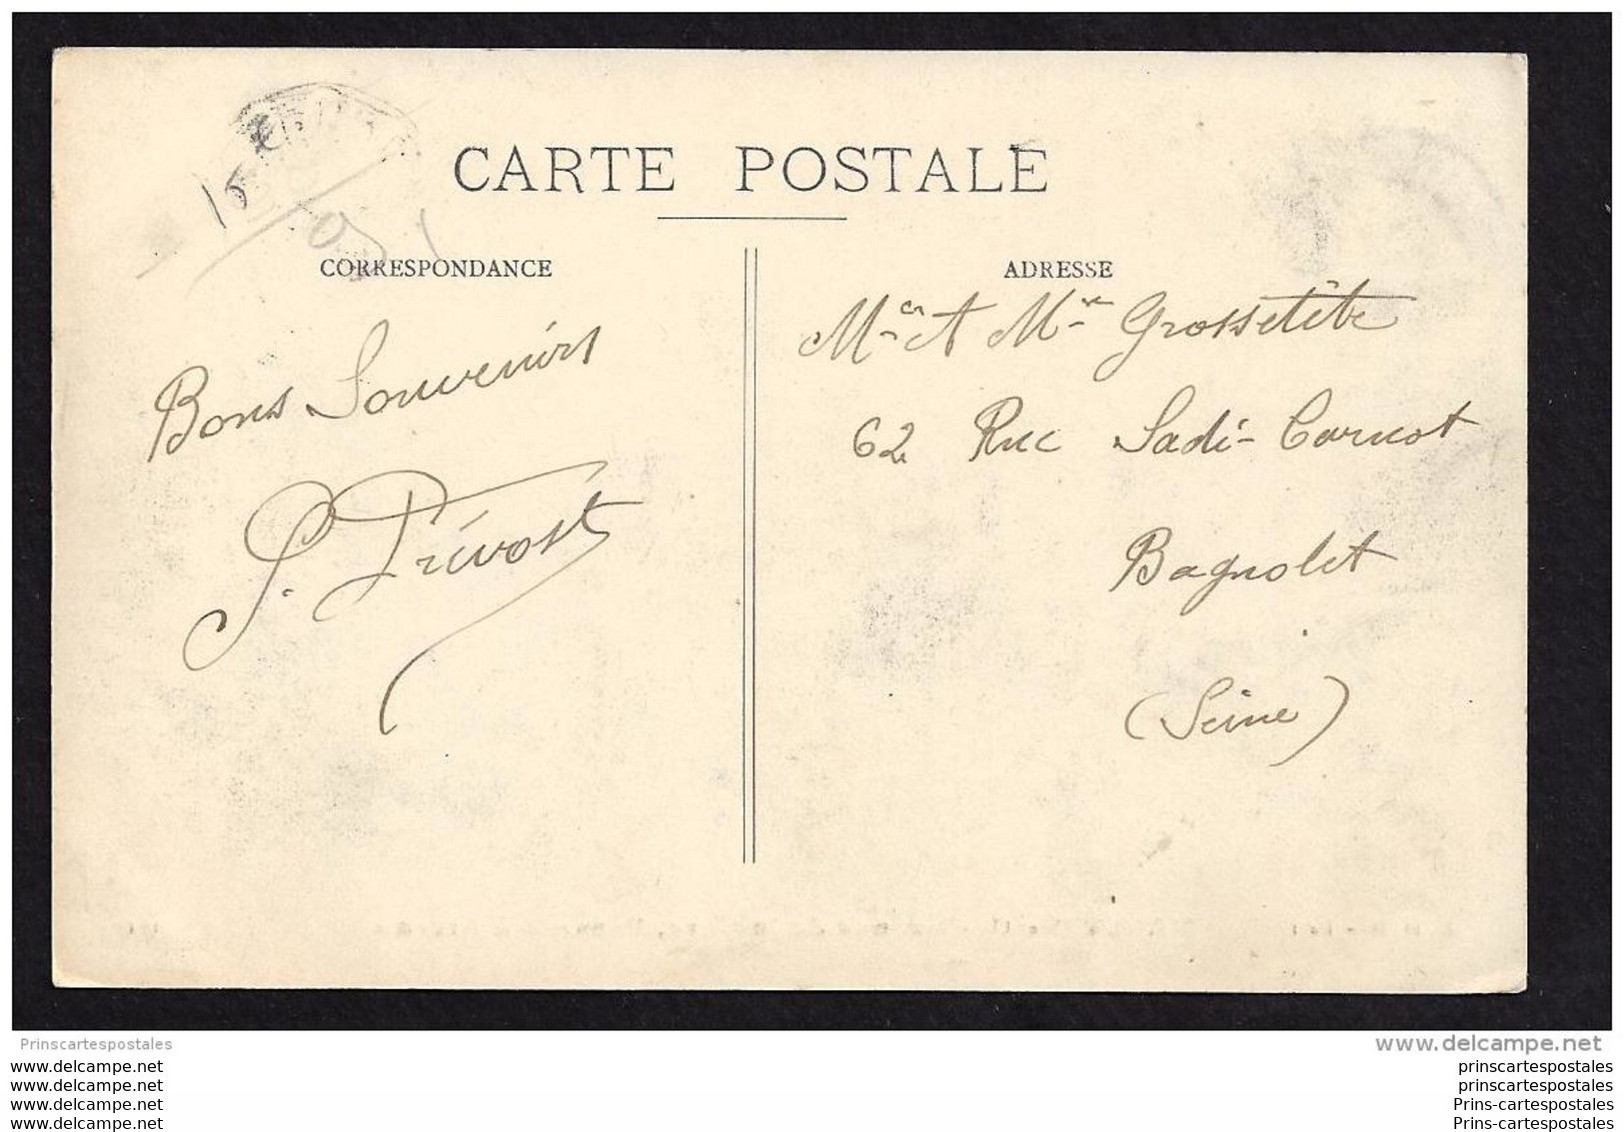 CARTE POSTALE
CORRESPONDANCE
Bons Souvenirs
P. Prévost
ADRESSE
Mr et Mme Grossetête
62 Rue Sadi-Carnot
Bagnolet
(Seine)
Prinscartespostales
www.delcampe.net
www.delcampe.net
www.delcampe.net
www.delcampe.net
www.delcampe.net
prinscartespostales
prinscartespostales
Prins-cartespostales
Prins-cartespostales